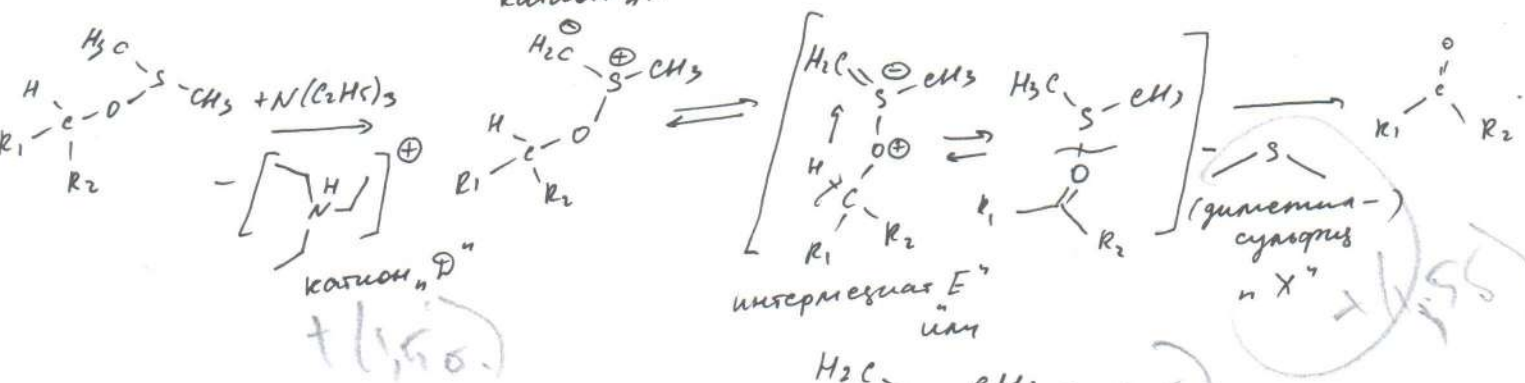 H3C
S
CH3
H
C
O
R1
R2
+N(C2H5)3
−
H
N
⊕
катион „D"
+(1,5 б.)
H2C ⊖
S ⊕
CH3
H
C
O
R1
R2
H2C
S ⊖
CH3
O⊕
H
C
R1
R2
H3C
S
CH3
O
R1
R2
интермедиат „E"
или
− S
(диметил-
сульфид
„X"
O
C
R1
R2
H2C